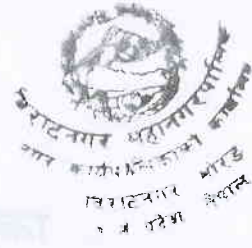 विराटनगर महानगरपालिका
नगर कार्यपालिकाको कार्यालय
विराटनगर मोरङ
प्रदेश नेपाल